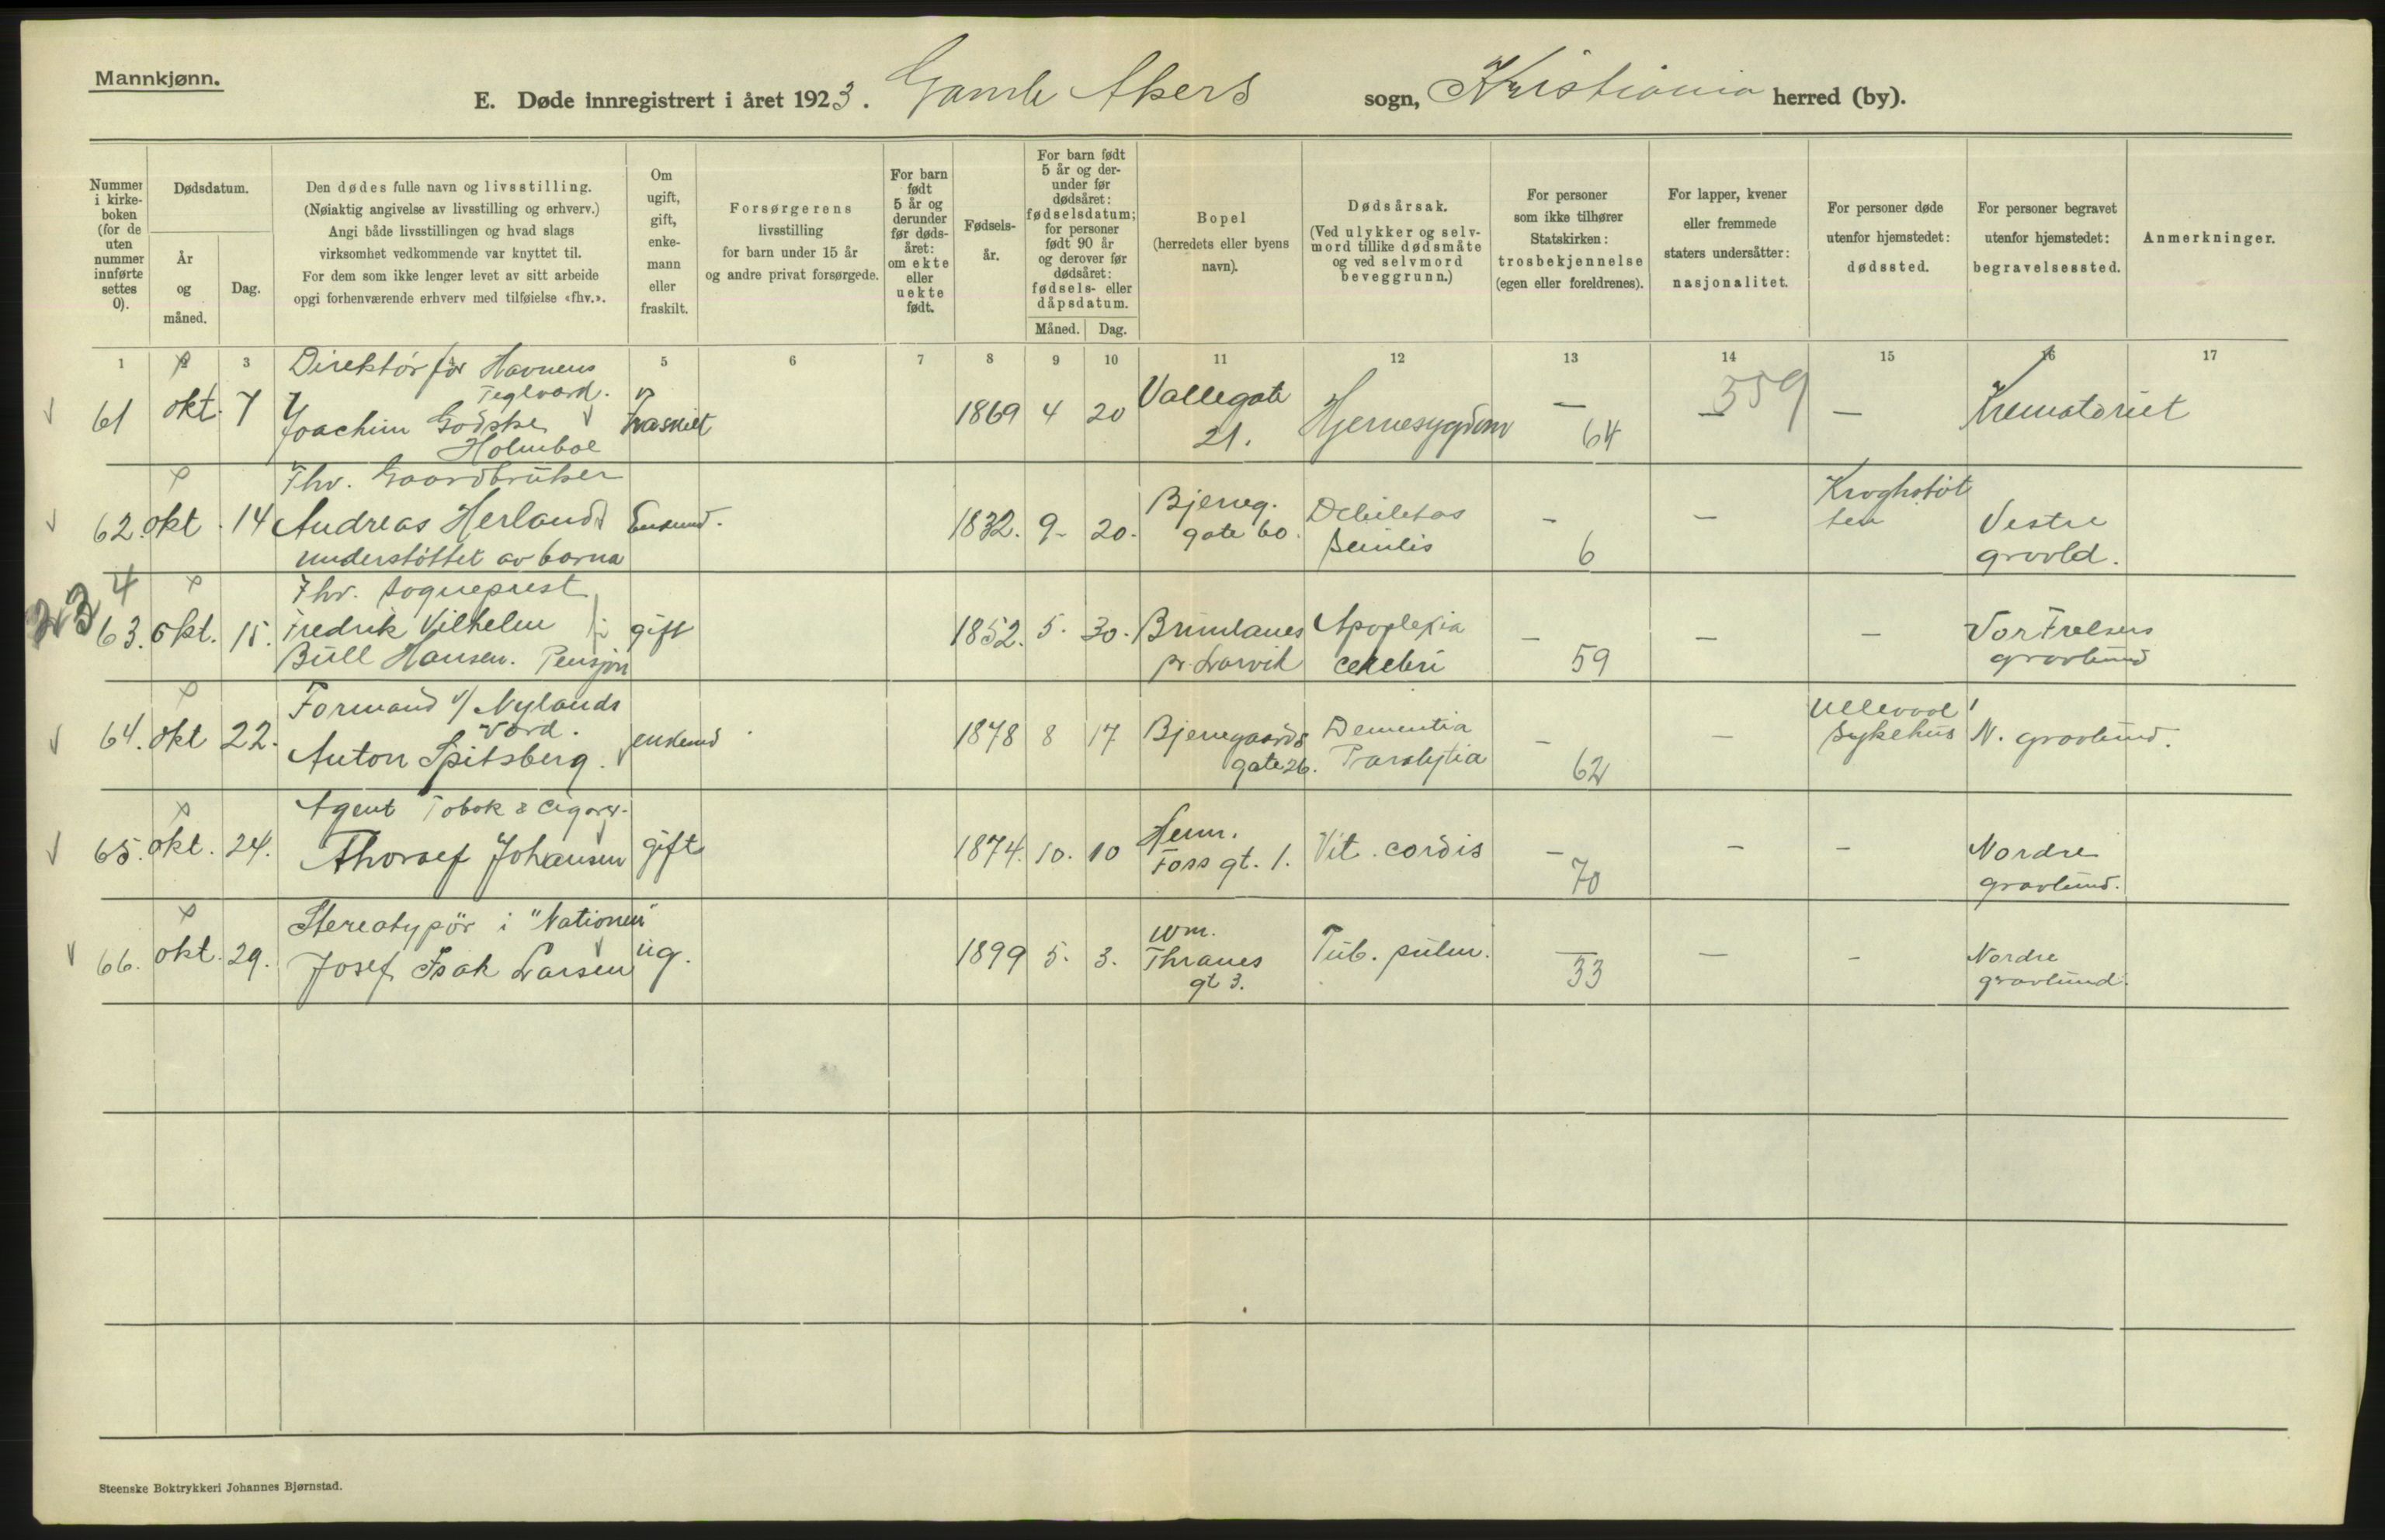 Mannkjønn.
E. Døde innregistrert i året 1923. Gamle Akers sogn, Kristiania herred (by).
Nummer i kirke-boken (for de uten nummer innførte settes 0).
Dødsdatum.
År og måned.
Dag.
Den dødes fulle navn og livsstilling.
(Nøiaktig angivelse av livsstilling og erhverv.)
Angi både livsstillingen og hvad slags
virksomhet vedkommende var knyttet til.
For dem som ikke lenger levet av sitt arbeide
opgi forhenværende erhverv med tilføielse «fhv.».
Om ugift, gift, enke-mann eller fraskilt.
Forsørgerens
livsstilling
for barn under 15 år
og andre privat forsørgede.
For barn født 5 år og derunder før døds-året: om ekte eller uekte født.
Fødsels-år.
For barn født 5 år og der-under før dødsåret: fødselsdatum; for personer født 90 år og derover før dødsåret: fødsels- eller dåpsdatum.
Måned. Dag.
Bopel
(herredets eller byens navn).
Dødsårsak.
(Ved ulykker og selv-mord tillike dødsmåte og ved selvmord beveggrunn.)
For personer
som ikke tilhører
Statskirken:
trosbekjennelse
(egen eller foreldrenes).
For lapper, kvener
eller fremmede
staters undersåtter:
nasjonalitet.
For personer døde
utenfor hjemstedet:
dødssted.
For personer begravet
utenfor hjemstedet:
begravelsessted.
Anmerkninger.
1 2 3 5 6 7 8 9 10 11 12 13 14 15 16 17
Direktør for Havnens
Teglværk.
61 okt. 7 Joachim Godske Holmboe fraskilt 1869 4 20 Vallegate 21. Hjernesygdom — 64 — 359 — Krematoriet
Fhv. Gaardbruker
62. okt. 14 Andreas Herland Enkemd. 1832. 9- 20. Bjerreg. gate 60. Debilitas senilis – 6 — Kroghstøtten Vestre gravld.
understøttet av barna
23 4
Fhv. sogneprest
63. okt. 15. Fredrik Vilhelm Bull Hansen. Pensjon gift 1852. 5. 30. Brunlanes pr. Larvik Apoplexia cerebri — 59 — — Vor Frelsers gravlund
Formand v/ Nylands
Værd.
64. okt 22. Anton Spitsberg. enkemd 1878 8 17 Bjerregaards gate 26. Dementia Paralytia — 62 — Ullevaal Sykehus N. gravlund.
Agent Tobak & Cigarer.
65. okt. 24. Thoralf Johansen gift 1874. 10. 10 Herm. Foss gt. 1. Vit. cordis — 70 — — Nordre gravlund.
Stereotypør i "Nationen"
66. okt. 29. Josef Isak Larsen ug. 1899 5. 3. Wm. Thranes gt 3. Tub. pulm. — 33 — – Nordre gravlund.
Steenske Boktrykkeri Johannes Bjørnstad.